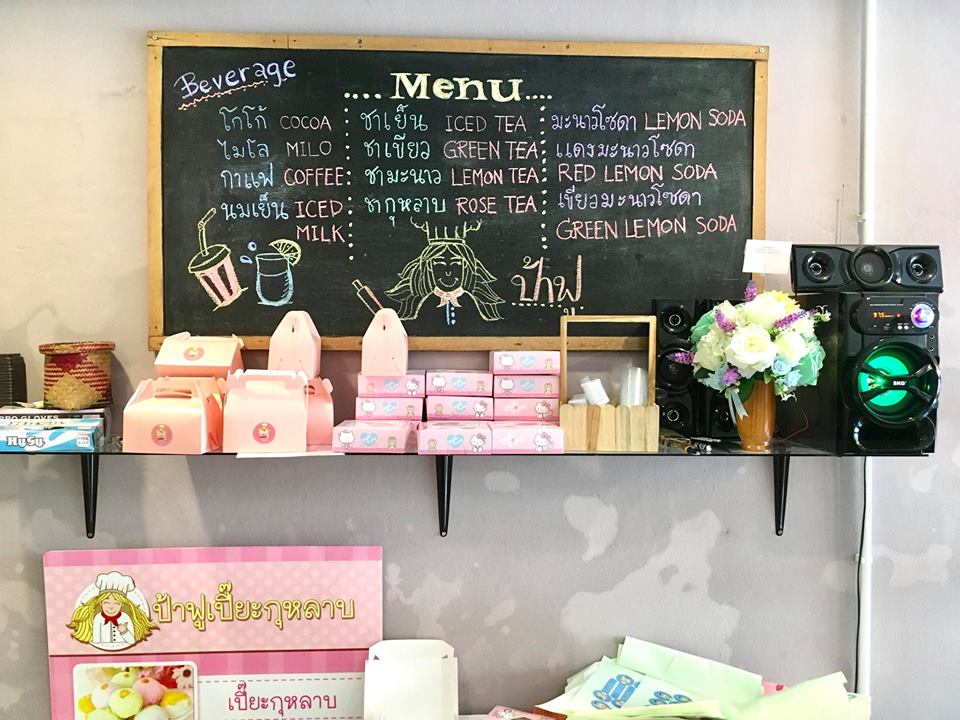 Beverage
....Menu....
โกโก้ COCOA
ไมโล MILO
กาแฟ COFFEE
นมเย็น ICED
MILK
ชาเย็น ICED TEA
ชาเขียว GREEN TEA
ชามะนาว LEMON TEA
ชากุหลาบ ROSE TEA
มะนาวโซดา LEMON SODA
แดงมะนาวโซดา
RED LEMON SODA
เขียวมะนาวโซดา
GREEN LEMON SODA
ป้าฟู
GLOVES
HySy
SKG
ป้าฟูเปี๊ยะกุหลาบ
เปี๊ยะกุหลาบ